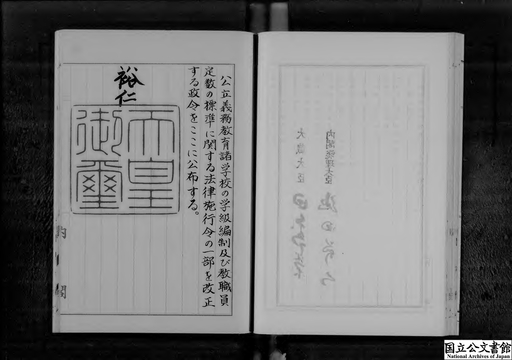 公立義務教育諸学校の学級編制及び教職員
定数の標準に関する法律施行令の一部を改正
する政令をここに公布する。
裕仁
天皇
御璽
内閣
内閣総理大臣
大蔵大臣
国立公文書館
National Archives of Japan